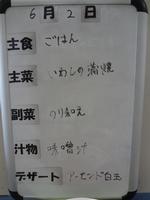 6月2日
主食 ごはん
主菜 いわしの蒲焼
副菜 のり和え
汁物 味噌汁
デザート アーモンド白玉